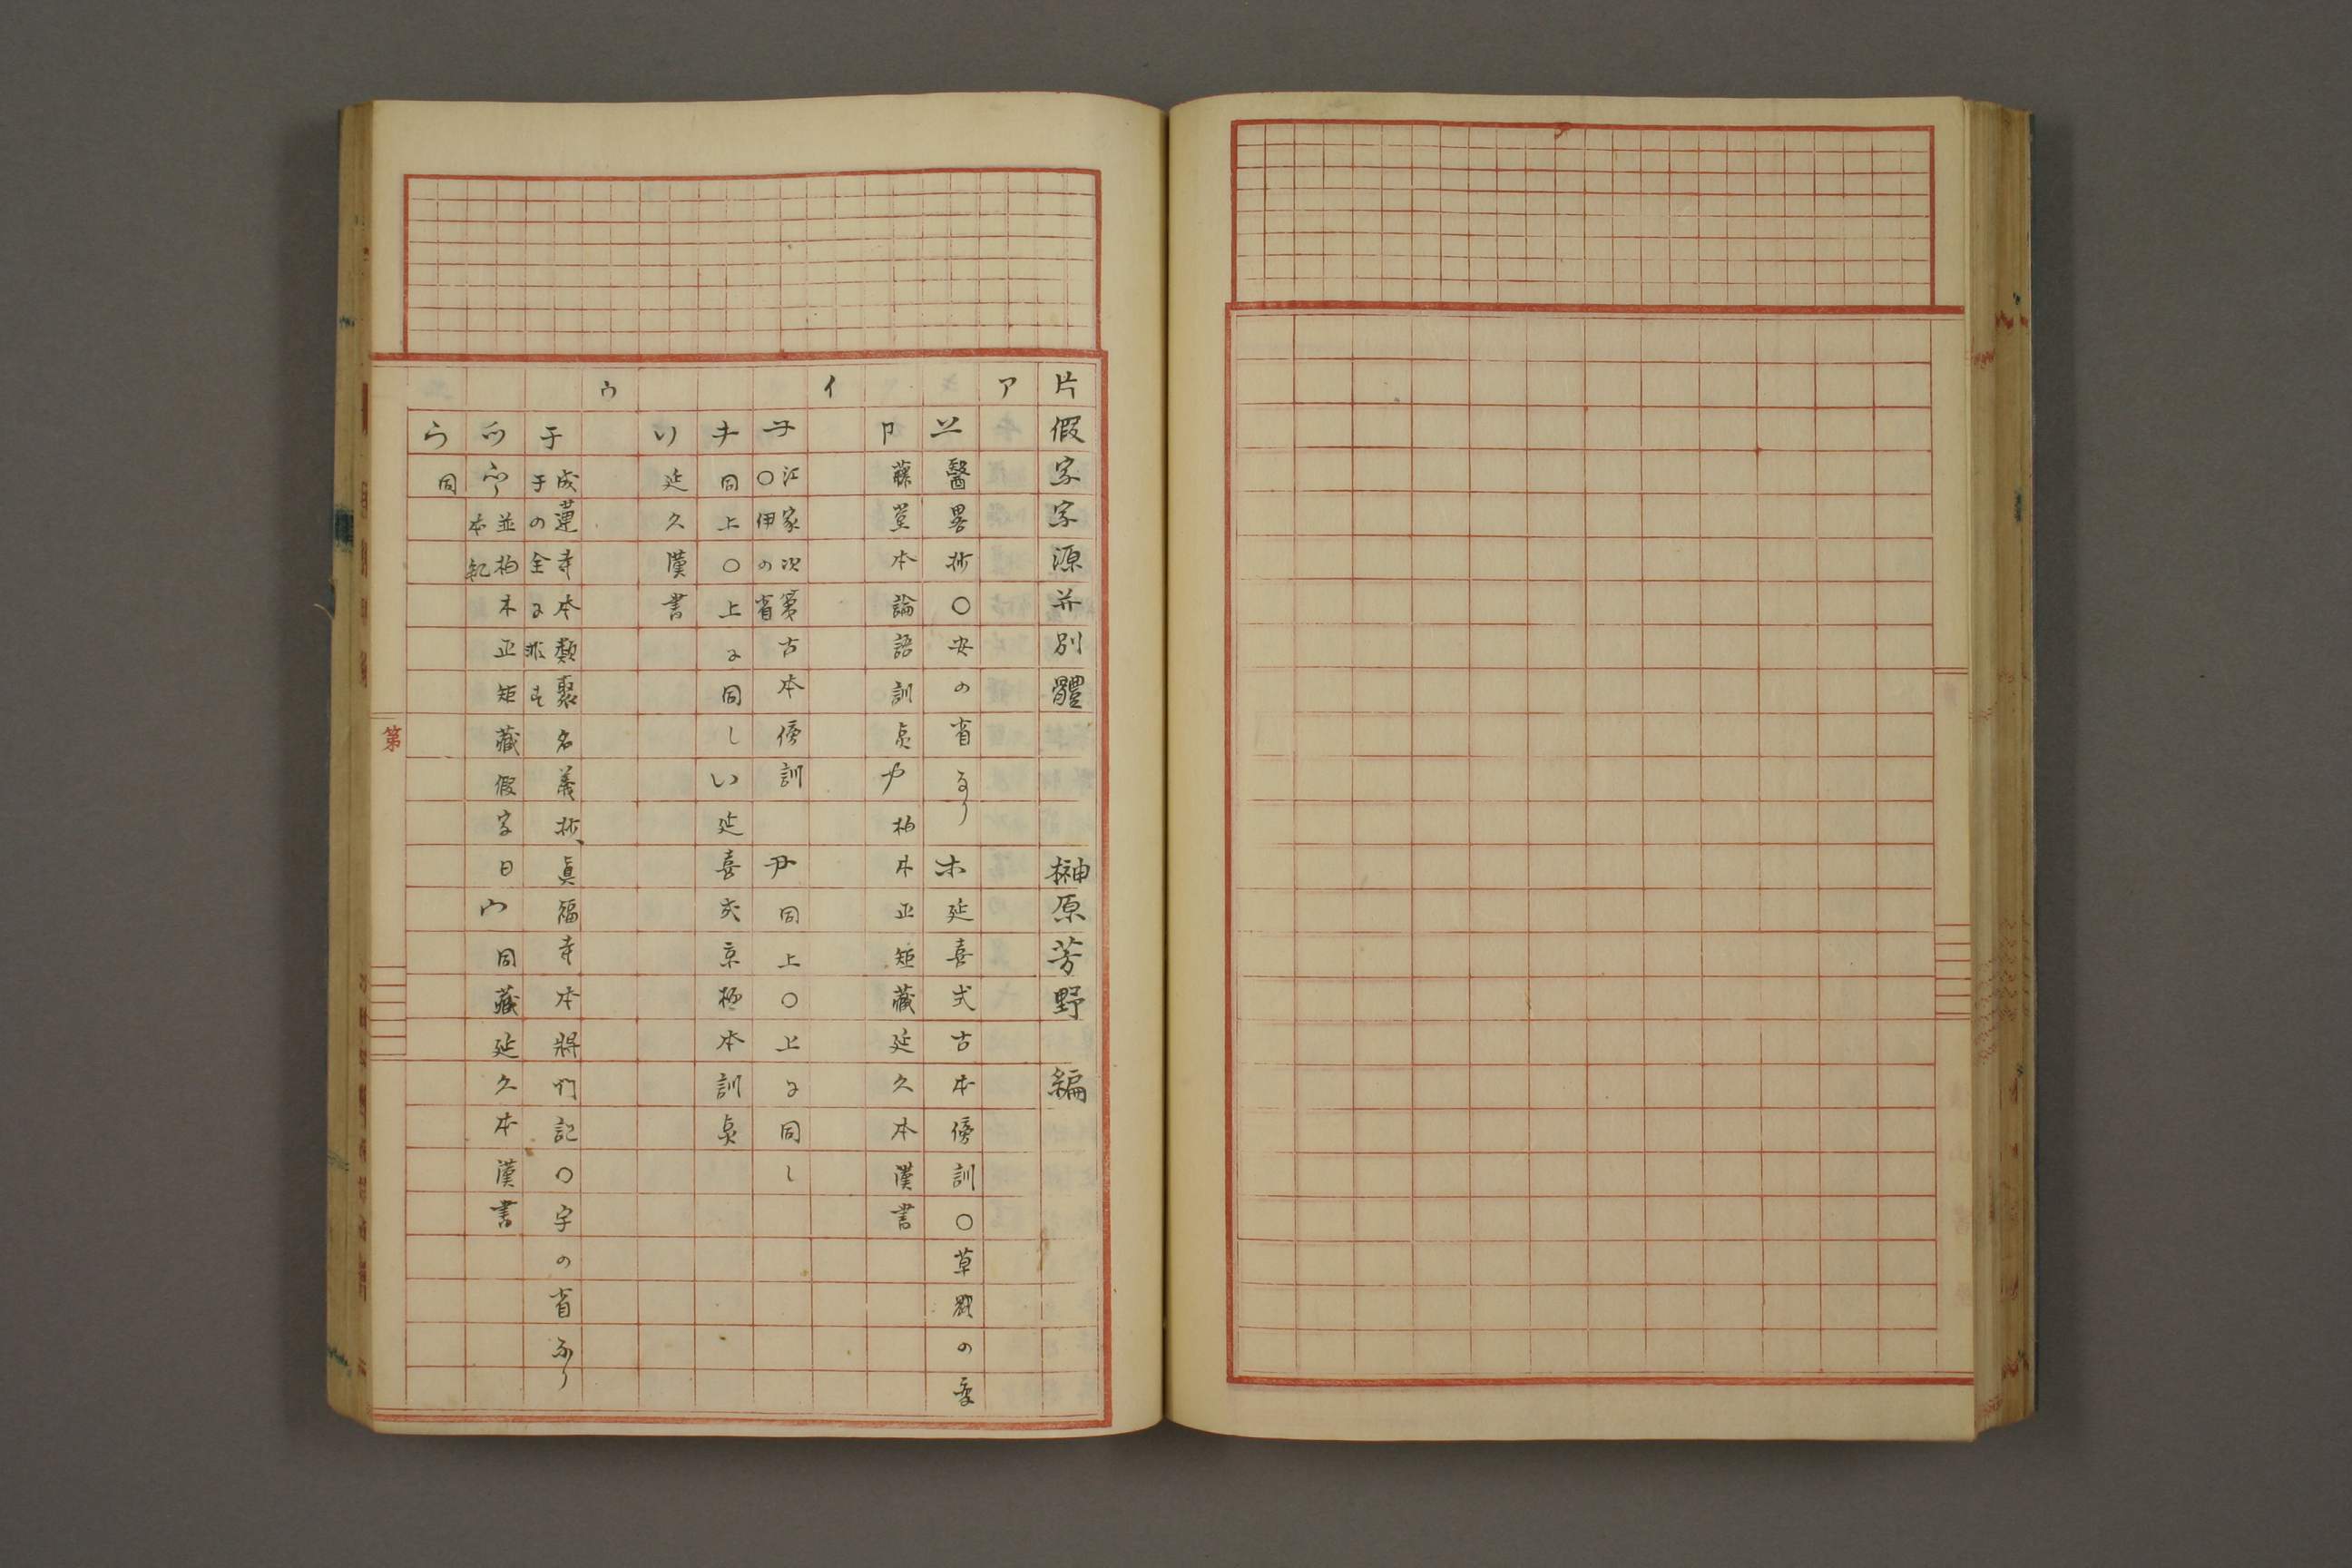 片假字字源并別體　榊原芳野　編
ア
醫畧抄〇安の省なり　延喜式古本傍訓〇草
卩　藤堂本論語訓点　柏木正矩藏延久本漢書
イ
江家次第古本傍訓　尹　同上〇上に同し
〇伊の省
同上〇上に同し　い　延喜式京極本訓点
リ　延久漢書
ウ
于　成蓮寺本類聚名義抄、眞福寺本將門記〇宇の省なり
于の全に非す
並柏木正矩藏假字日本紀　同藏延久本漢書
う　同
第